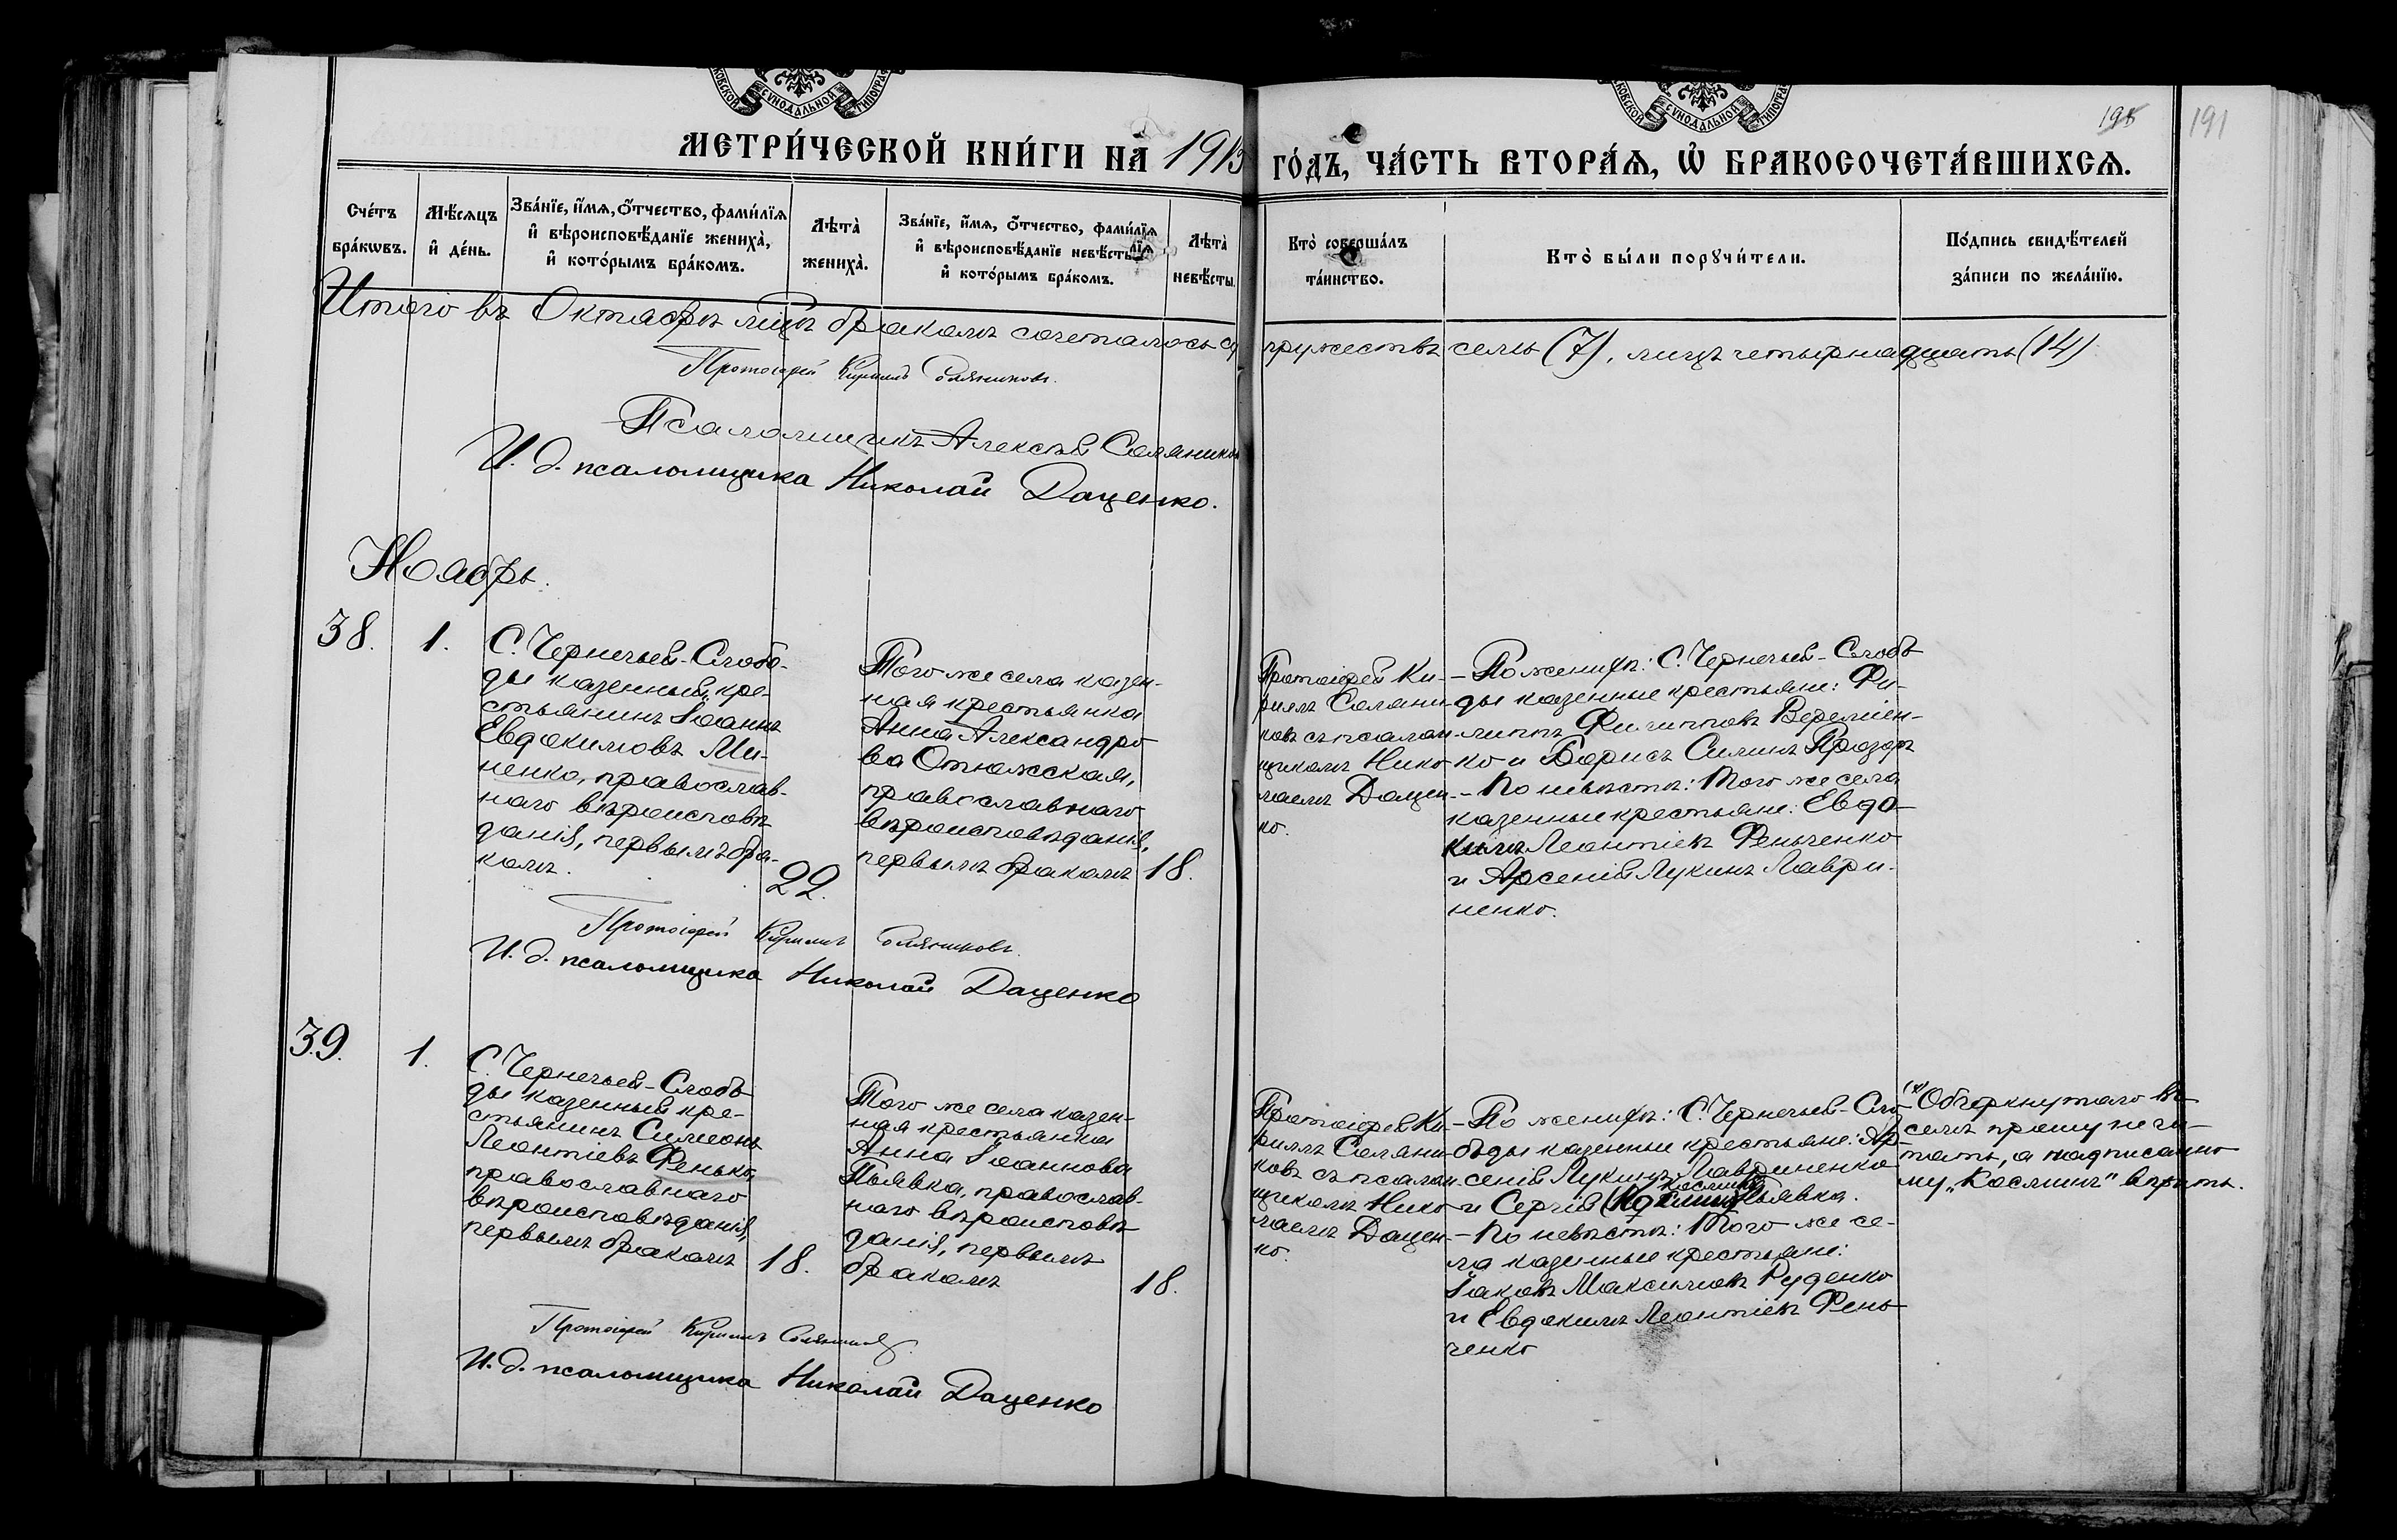 СУНОДАЛЬНОЙ
СУНОДАЛЬНОЙ
МЕТРИ́ЧЕСКОЙ КНИ́ГИ НА̀ 1913 ГО́ДЪ, ЧА́СТЬ ВТОРА́Ѧ, Ѽ БРАКОСОЧЕТА́ВШИХСѦ.
191
Сче́тъ бра́кѡвъ.
Мѣ́сѧцъ и҆ де́нь.
Зва́нїе, и҆́мѧ, ѻ҆́тчество, фами́лїѧ
и҆ вѣроисповѣ́данїе жениха̀,
и҆ кото́рымъ бра́комъ.
Лѣта̀ жениха̀.
Зва́нїе, и҆́мѧ, ѻ҆́тчество, фами́лїѧ
и҆ вѣроисповѣ́данїе невѣ́сты
и҆ кото́рымъ бра́комъ.
Лѣта̀ невѣ́сты.
Кто̀ соверша́лъ та́инство.
Кто̀ бы́ли порꙋчи́тели.
По́дпись свидѣ́телей
за́писи по жела́нїю.
Итого въ Октябрѣ лицъ бракомъ сочеталось супружествъ семь (7), лицъ четырнадцать (14)
Протоіерей Кириллъ Соляниковъ.
Псаломщикъ Алексѣй Соляников
И. д. псаломщика Николай Даценко.
Ноябрь.
38.
1.
С. Чернечьей-Слобо-
ды казенный кре-
стьянинъ Іоаннъ
Евдокимовъ Ми-
ненко, православ-
наго вѣроисповѣ
данія, первымъ бра-
комъ.
22.
Того же села казен-
ная крестьянка
Анна Александро
ва Отюжская,
православнаго
вѣроисповѣданія,
первымъ бракомъ
18.
Протоіерей Ки-
риллъ Соляни-
ковъ съ псалом-
щикомъ Нико
лаемъ Дацен-
ко.
– По женихѣ: С. Чернечьей-Слобо
ды казенные крестьяне: Фи-
липпъ Филипповъ Веремiен-
ко и Борисъ Силинъ Прозоръ
– По невѣстѣ: Того же села
казенные крестьяне: Евдо-
кимъ Леонтіевъ Феньченко
и Арсеній Лукинъ Лаври-
ненко.
Протоіерей Кириллъ Соляниковъ.
И. д. псаломщика Николай Даценко
39.
1.
С. Чернечьей-Слобо
ды казенный кре-
стьянинъ Симеонъ
Леонтіевъ Фенько,
православнаго
вѣроисповѣданія,
первымъ бракомъ
18.
Того же села казен-
ная крестьянка
Анна Іоаннова
Пьявка, православ-
наго вѣроисповѣ
данія, первымъ
бракомъ
18.
Протоіерей Ки-
риллъ Соляни-
ковъ съ псалом-
щикомъ Нико
лаемъ Дацен-
ко.
– По женихѣ: С. Чернечьей-Сло-
боды казенные крестьяне: Ар-
сеній Лукинъ Лавриненко
Косминъ
и Сергій Пьявка.
– По невѣстѣ: Того же се-
ла казенные крестьяне:
Іаковъ Максимовъ Руденко
и Евдокимъ Леонтіевъ Фень
ченко
Обчеркнутаго во
семъ прошу не чи-
тать, а надписанно
му „Косминъ" вѣрить.
Протоіерей Кириллъ Соляниковъ
И. д. псаломщика Николай Даценко